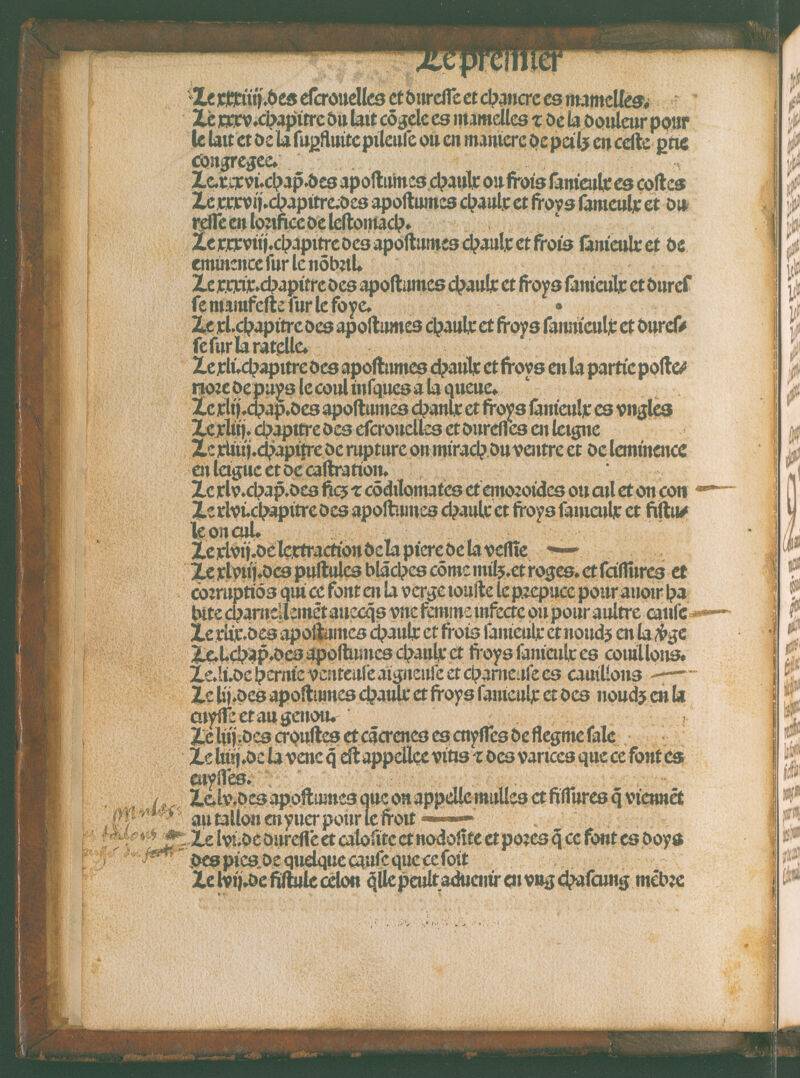 Le premier
Le xxxiiij.des eſcrouelles et dureſſe et chancre es mamelles.
Le xxxv.chapitre du lait cõgele es mamelles ⁊ de la douleur pour
le lait et de la ſuꝑfluite pileuſe ou en maniere de peilz en ceſte ꝑtie
congregee.
Le.xxxvi.chap̃.des apoſtumes chaulx ou frois ſanieulx es coſtes
Le xxxvij.chapitre.des apoſtumes chaulx et froys ſanieulx et du
reſſe en lorifice de leſtomach.
Le xxxviij.chapitre des apoſtumes chaulx et frois ſanieulx et de
eminence ſur le nõbril.
Le xxxix.chapitre des apoſtumes chaulx et froys ſanieulx et dureſ
ſe manifeſte ſur le foye.
Le xl.chapitre des apoſtumes chaulx et froys ſannieulx et dureſ⸗
ſe ſur la ratelle.
Le xli.chapitre des apoſtumes chaulx et froys en la partie poſte⸗
riore de puys le coul iuſques a la queue.
Le xlij.chap̃.des apoſtumes chaulx et froys ſanieulx es vngles
Le xliij. chapitre des eſcrouelles et dureſſes en leigne
Le xliiij.chapitre de rupture on mirach du ventre et de leminence
en leigue et de caſtration.
Le xlv.chap̃.des fics ⁊ cõdilomates et emoroides ou cul et on con
Le xlvi.chapitre des apoſtumes chaulx et froys ſanieulx et fiſtu⸗
le on cul.
Le xlvij.de lextraction de la piere de la veſſie
Le xlviij.des puſtules blãches cõme milz.et roges. et ſciſſures et
corruptiõs qui ce font en la verge iouſte le prepuce pour auoir ha
bite charnellemẽt auecq̃s vne femme infecte ou pour aultre cauſe
Le xlix.des apoſtumes chaulx et frois ſanieulx et noudz en la v̾ge
Le.l.chap̃.des apoſtumes chaulx et froys ſanieulx es couillons.
Le.li.de hernie venteuſe aigueuſe et charneuſe es cauillons
Le lij.des apoſtumes chaulx et froys ſanieulx et des noudz en la
cuyſſe et au genou.
Le liij.des crouſtes et cãcrenes es cuyſſes de flegme ſale
Le liiij.de la vene q̃ eſt appellee vitis ⁊ des varices que ce font es
cuyſſes.
Le.lv.des apoſtumes que on appelle mulles et fiſſures q̃ viennẽt
au tallon en yuer pour le froit
Le lvi.de dureſſe et caloſite et nodoſite et pores q̃ ce font es doys
des pies de quelque cauſe que ce ſoit
Le lvij.de fiſtule celon q̃lle peult aduenir en vng chaſcung mẽbre
mules
talons